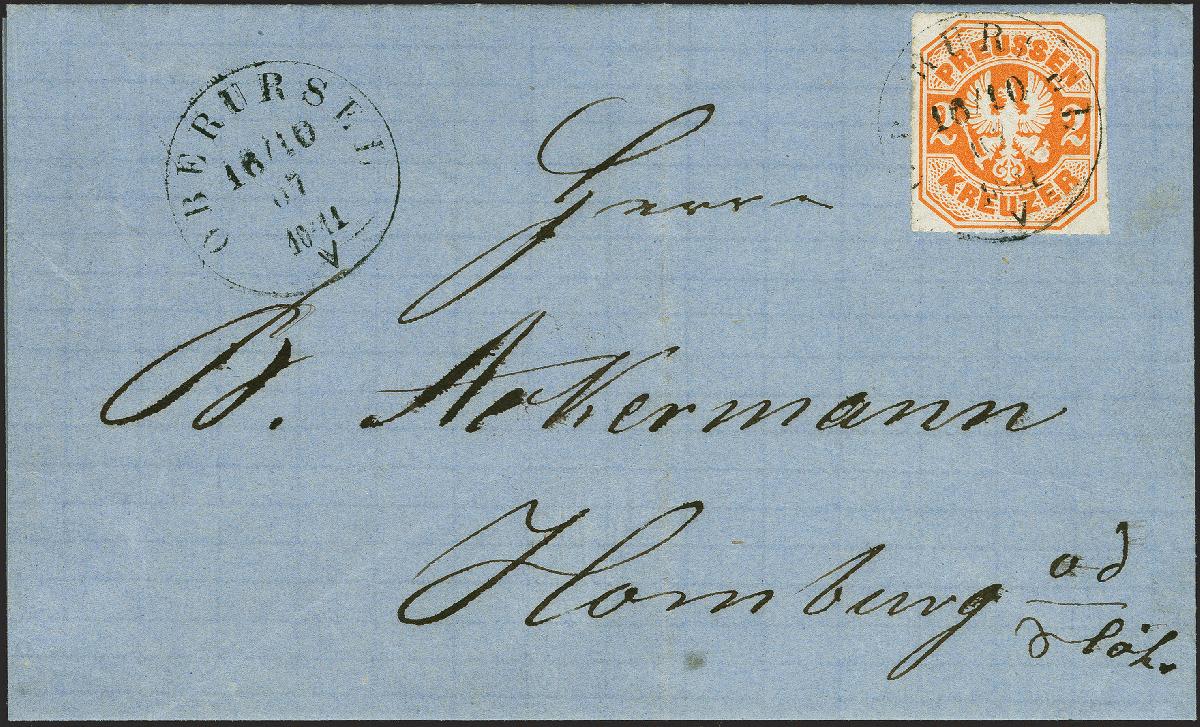 OBERURSEL
16/10
67
10-11
V
PREUSSEN
2 2
KREUZER
16/10
V
Herrn
B. Ackermann
Homburg